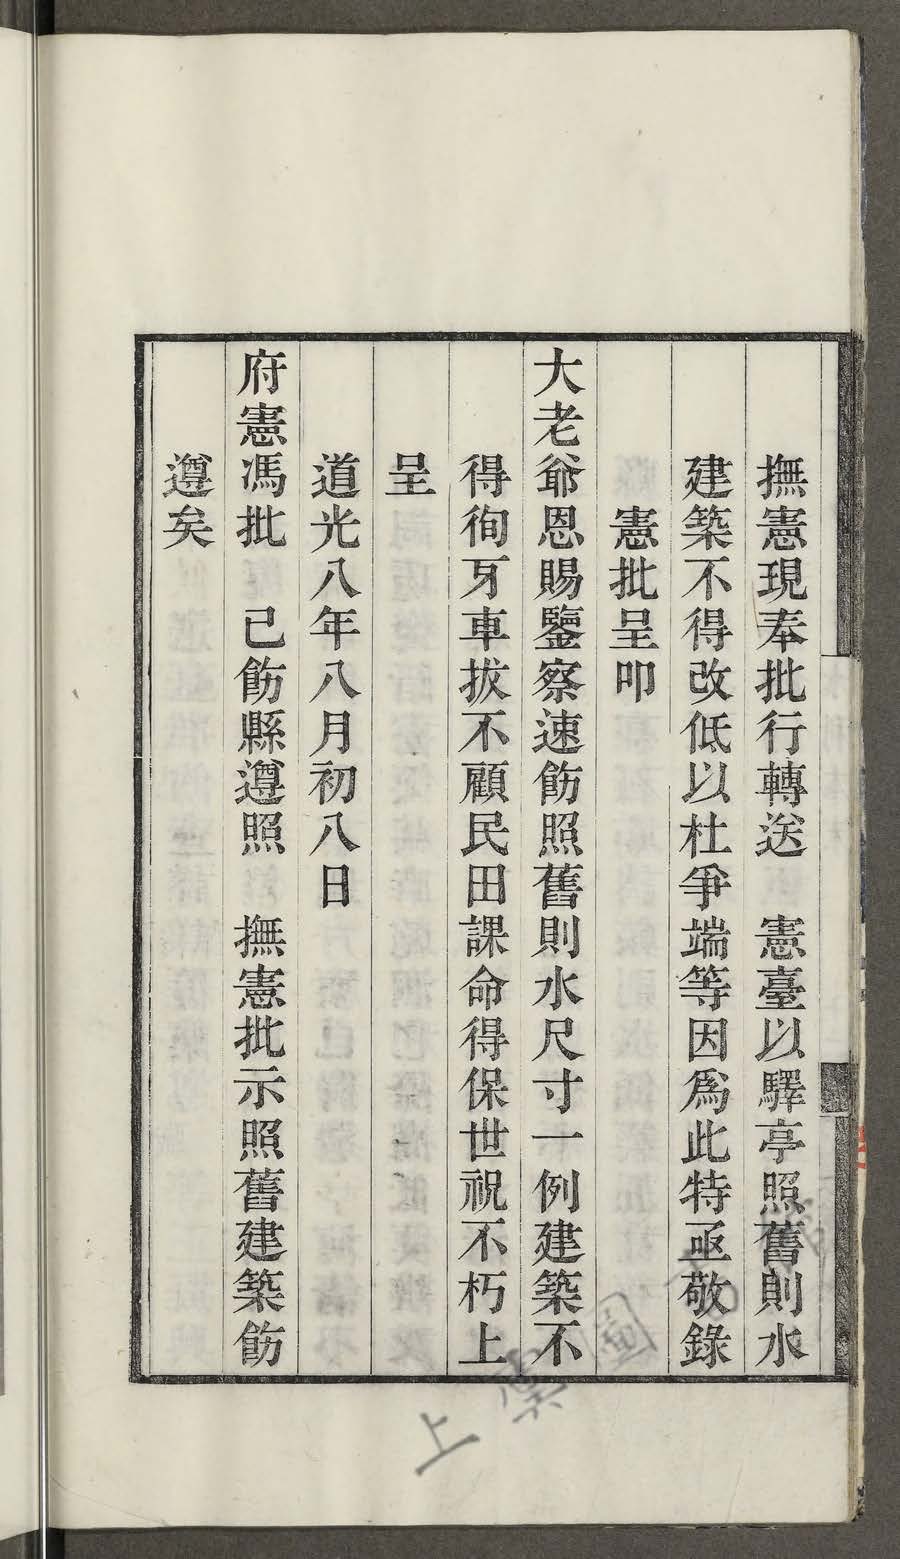 撫憲現奉批行轉送　憲臺以驛亭照舊則水
建築不得改低以杜爭端等因爲此特亟敬錄
憲批呈叩
大老爺恩賜鑒察速飭照舊則水尺寸一例建築不
得徇牙車拔不顧民田課命得保世祝不朽上
呈
道光八年八月初八日
府憲馮批　已飭縣遵照　撫憲批示照舊建築飭
遵矣
上虞圖